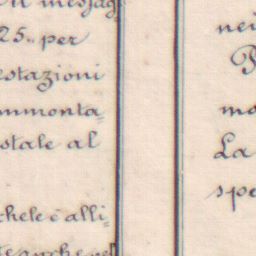 25.. per
estazioni
mmonta=
stale al
chele è alli=
nei
mo
La
spe